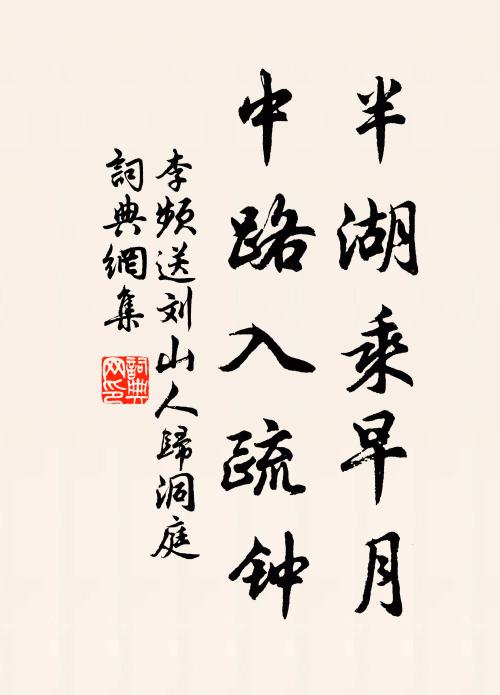 半湖乘早月
中路入疏钟
李频送刘山人歸洞庭
詞典網集
詞典网印